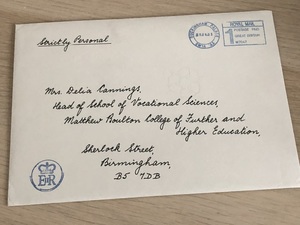 Strictly Personal
BUCKINGHAM PALACE
ROYAL MAIL
POSTAGE PAID
Mrs. Delia Cannings,
Head of School of Vocational Sciences,
Matthew Boulton College of Further and
Higher Education,
Sherlock Street,
Birmingham,
B5 7DB
EIIR